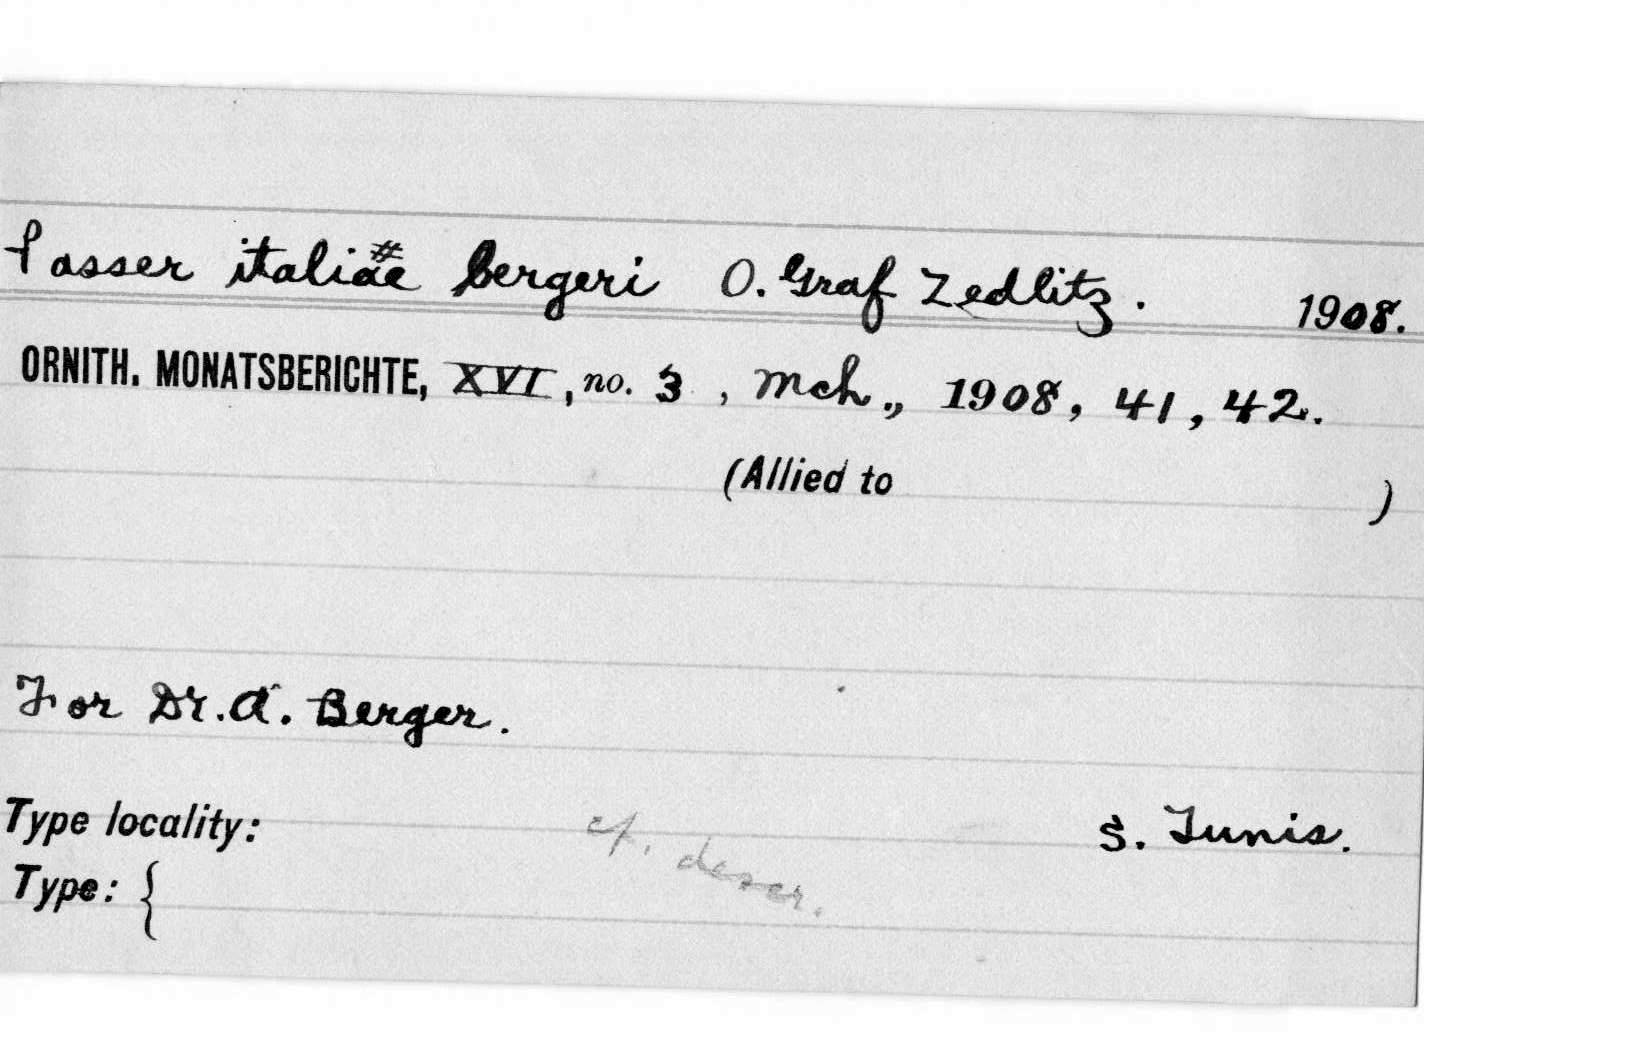 Passer italiae # bergeri O. Graf Zedlitz. 1908.
ORNITH. MONATSBERICHTE, XVI, no. 3, Mch., 1908, 41, 42.
(Allied to )
For Dr. A. Berger.
Type locality: S. Tunis.
cf. descr.
Type: {